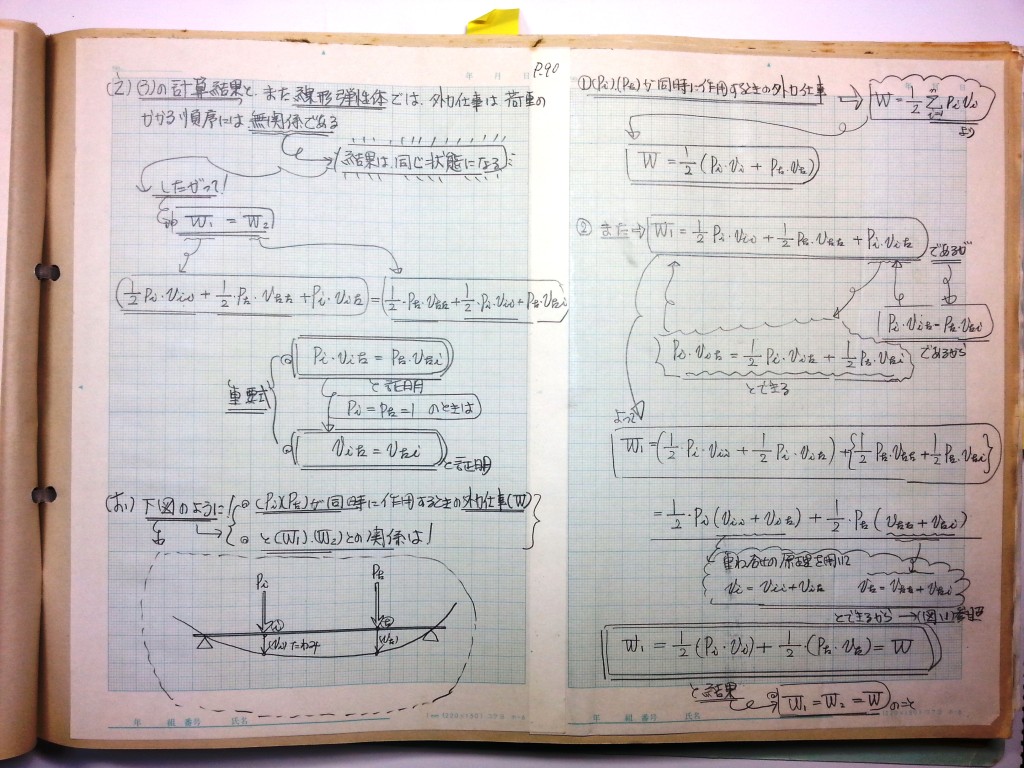 年 月 日 P.90
(え) (う)の計算結果と、また線形弾性体では、外力仕事は荷重の
かかる順序には無関係である
(結果は、同じ状態になる)
したがって!
W1 = W2
(1/2 Pi・Vii + 1/2・Pk・Vkk + Pi・Vik) = (1/2・Pk・Vkk + 1/2・Pi・Vii + Pk・Vki)
重要式
Pi・Vik = Pk・Vki
と証明
Pi = Pk = 1 のときは
Vik = Vki
と証明
(お) 下図のように!
(Pi)(Pk)が同時に作用するときの外力仕事(W)
と(W1)・(W2)との関係は!
Pi Pk
(Vi)たわみ (Vk)
年 組 番号 氏名
① (Pi)・(Pk)が同時に作用するときの外力仕事
W = 1/2 Σ Pi Vi
より
W = 1/2 (Pi・Vi + Pk・Vk)
② また⇒ W1 = 1/2 Pi・Vii + 1/2 Pk・Vkk + Pi・Vik
であるが
Pi・Vik = Pk・Vki
であるから
Pi・Vik = 1/2 Pi・Vik + 1/2 Pk・Vki
とできる
よって
W1 = (1/2・Pi・Vii + 1/2 Pi・Vik) + {1/2 Pk・Vkk + 1/2 Pk・Vki}
= 1/2・Pi (Vii + Vik) + 1/2・Pk (Vkk + Vki)
重ね合せの原理を用いて
Vi = Vii + Vik Vk = Vkk + Vki
とできるから
W1 = 1/2 (Pi・Vi) + 1/2・(Pk・Vk) = W
と結果
W1 = W2 = W のこと
年 組 番号 氏名